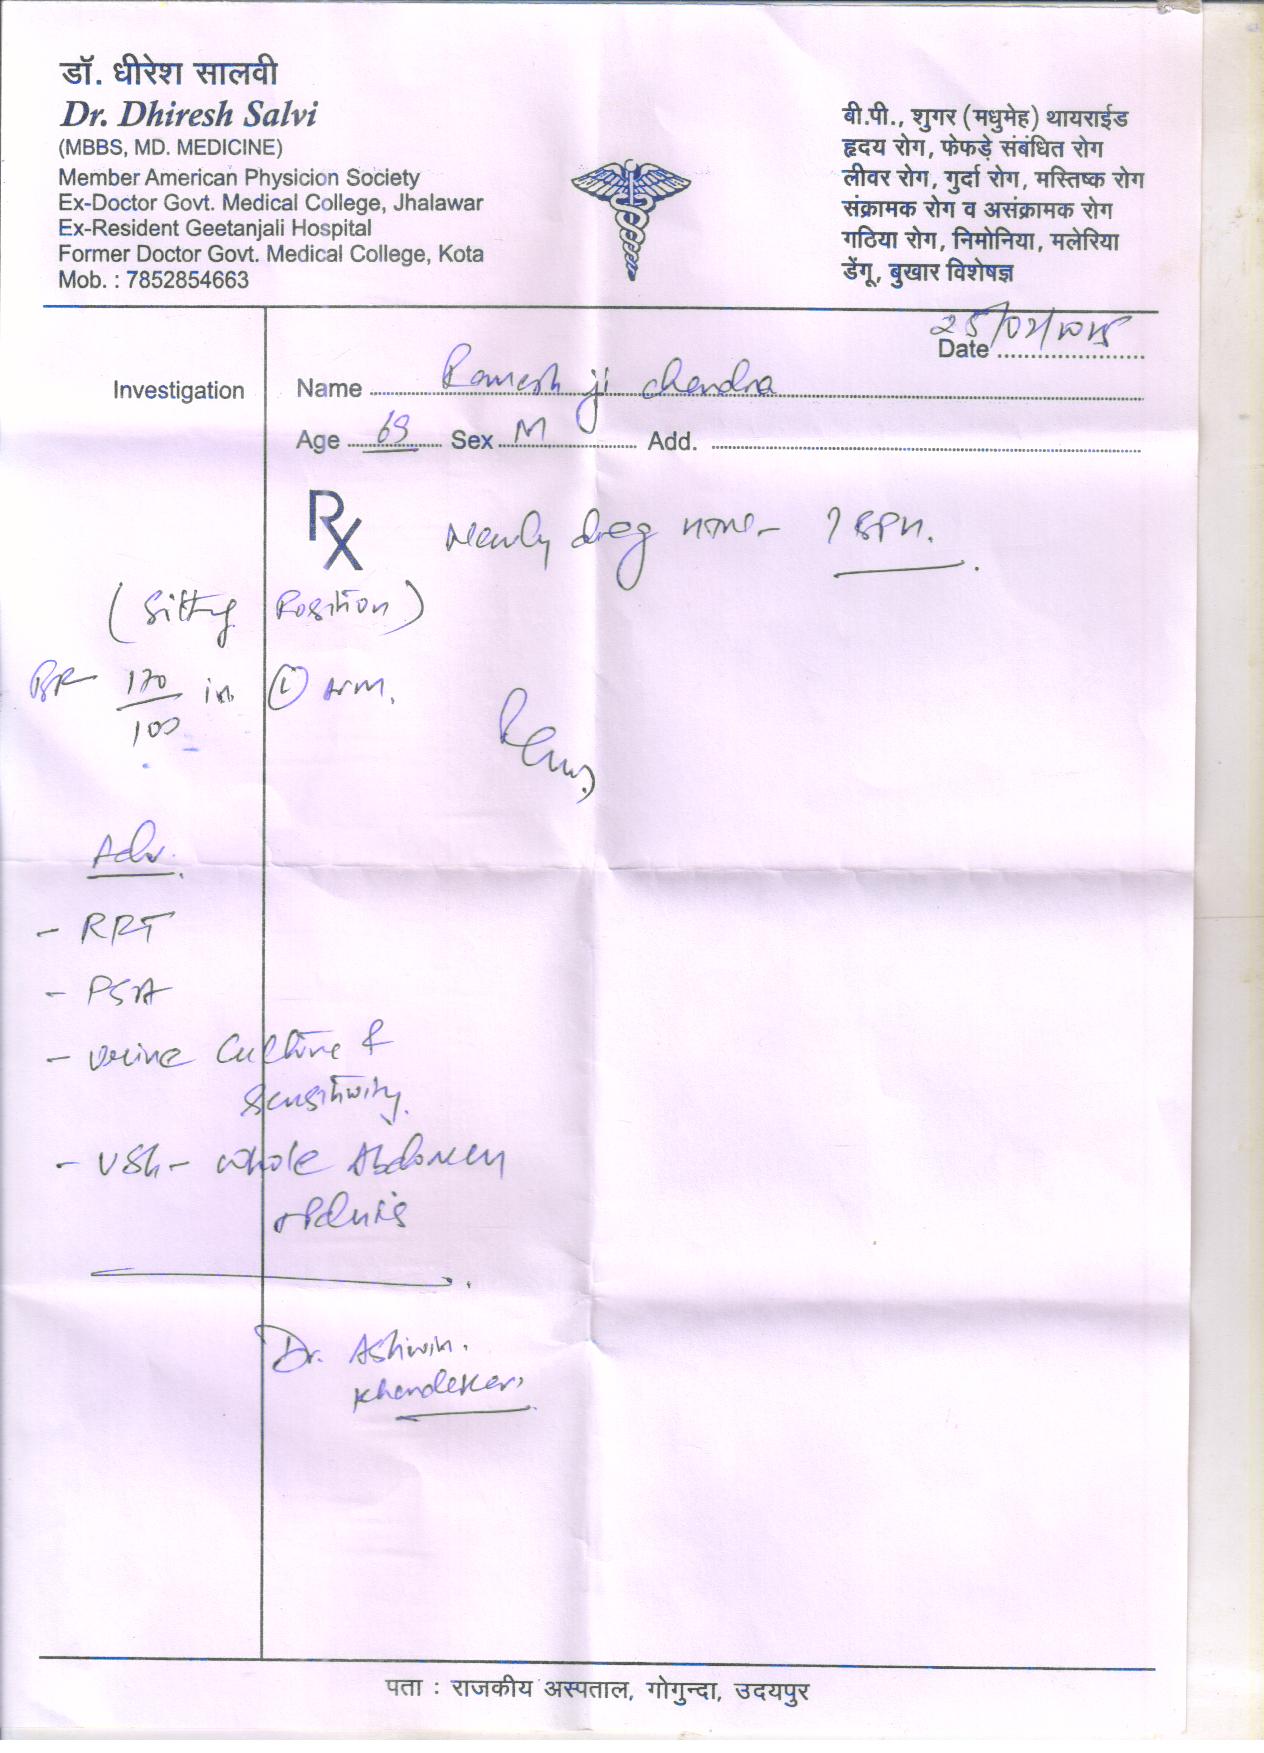 डॉ. धीरेश सालवी
Dr. Dhiresh Salvi
(MBBS, MD. MEDICINE)
Member American Physicion Society
Ex-Doctor Govt. Medical College, Jhalawar
Ex-Resident Geetanjali Hospital
Former Doctor Govt. Medical College, Kota
Mob. : 7852854663
बी.पी., शुगर (मधुमेह) थायराईड
हृदय रोग, फेफड़े संबंधित रोग
लीवर रोग, गुर्दा रोग, मस्तिष्क रोग
संक्रामक रोग व असंक्रामक रोग
गठिया रोग, निमोनिया, मलेरिया
डेंगू, बुखार विशेषज्ञ
Date
Investigation
Name Ramesh ji chandra
Age Sex M Add.
Rx Newly
(Sitting Position)
BP 170/100 in (L) arm.
Adv.
- RFT
- PSA
- Urine Culture &
Sensitivity.
- USG - whole Abdomen
Dr. Ashwin.
Khandekar.
पता : राजकीय अस्पताल, गोगुन्दा, उदयपुर